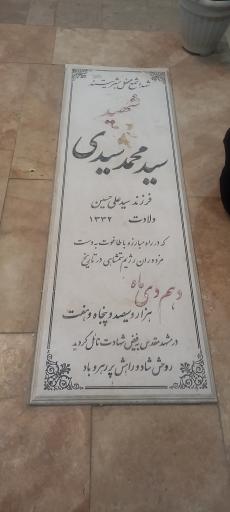 شهدا شمع محفل بشریتند
شهید
سید محمد سیدی
فرزند سید علی حسین
ولادت ۱۳۳۲
که در راه مبارزه با طاغوت به دست
مزدوران رژیم شاهنشاهی در تاریخ
دهم دی ماه
هزار و سیصد و پنجاه و هفت
در مشهد مقدس بفیض شهادت نائل گردید
روحش شاد و راهش پر رهرو باد